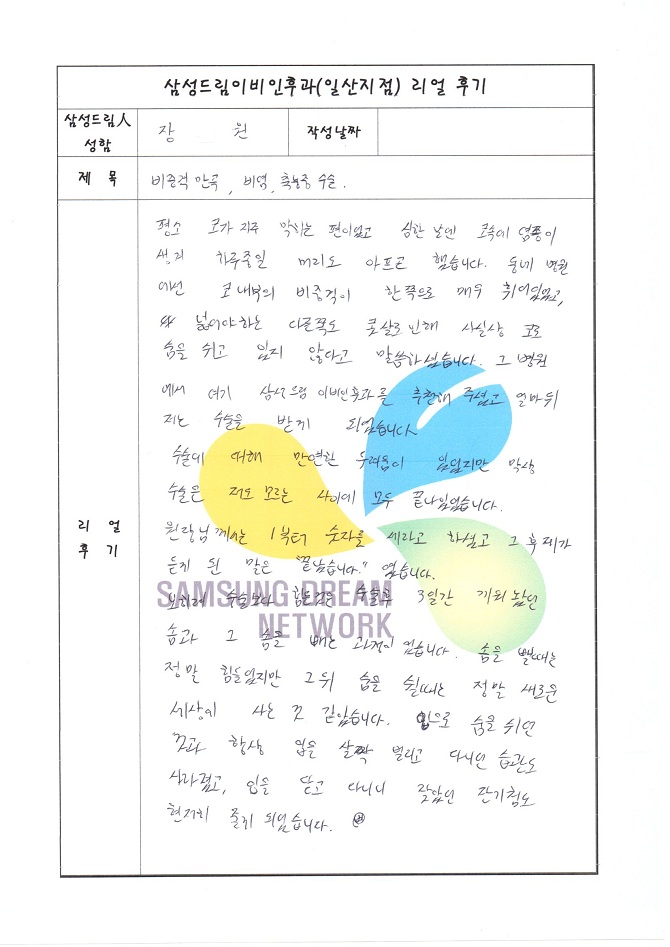 삼성드림이비인후과(일산지점) 리얼 후기
삼성드림人 성함
장 원
작성날짜
제 목
비중격 만곡, 비염, 축농증 수술.
리 얼 후 기
평소 코가 자주 막히는 편이었고 심한 날엔 코속에 염증이
생겨 하루종일 머리도 아프곤 했습니다. 동네 병원
에선 코 내부의 비중격이 한쪽으로 매우 휘어있었고,
넓어야하는 다른쪽도 콧살로 인해 사실상 코로
숨을 쉬고 있지 않다고 말씀하셨습니다. 그 병원
에서 여기 삼성드림 이비인후과를 추천해 주셨고 얼마뒤
저는 수술을 받게 되었습니다
수술에 대해 만연한 두려움이 있었지만 막상
수술은 저도 모르는 사이에 모두 끝나있었습니다.
원장님께서는 1부터 숫자를 세라고 하셨고 그 후 제가
듣게 된 말은 "끝났습니다." 였습니다.
수술보다 힘든것은 수술후 3일간 끼워 놓았던
솜과 그 솜을 빼는 과정이었습니다. 솜을 뺄때는
정말 힘들었지만 그 뒤 숨을 쉴때는 정말 새로운
세상에 사는 것 같았습니다. 입으로 숨을 쉬던
것과 항상 입을 살짝 벌리고 다니던 습관도
사라졌고, 입을 닫고 다니니 잦았던 잔기침도
현저히 줄게 되었습니다.
SAMSUNG DREAM
NETWORK